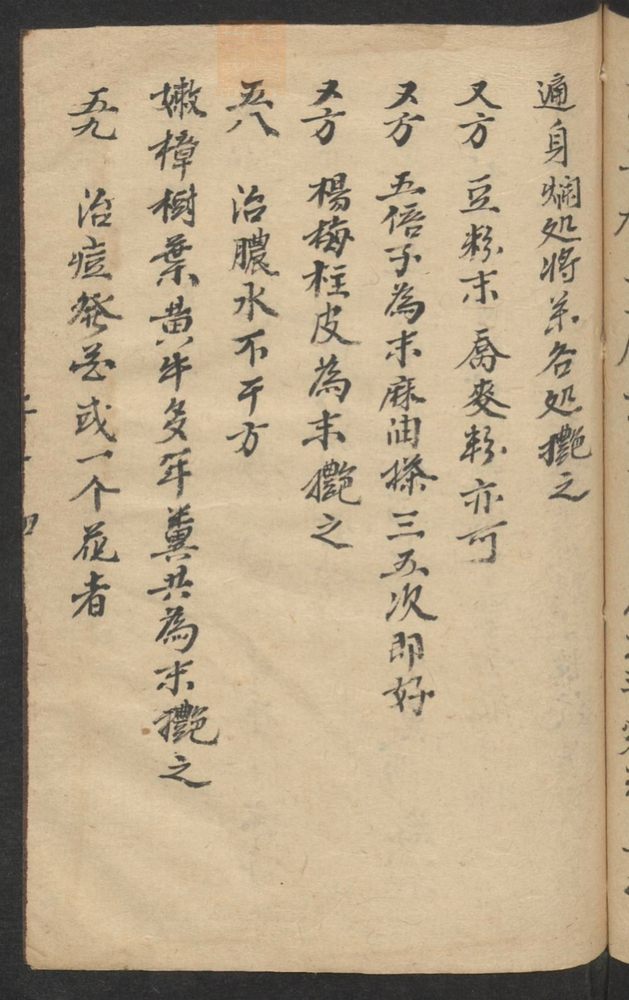 遍身爛処將末各処攡之
又方 豆粉末 喬麥粉亦可
又方 五倍子為末麻油搽三五次即好
又方 楊梅柱皮為末攡之
五八 治膿水不干方
嫩樟樹葉黄牛多年糞共為末攡之
五九 治痘發 或一个花者